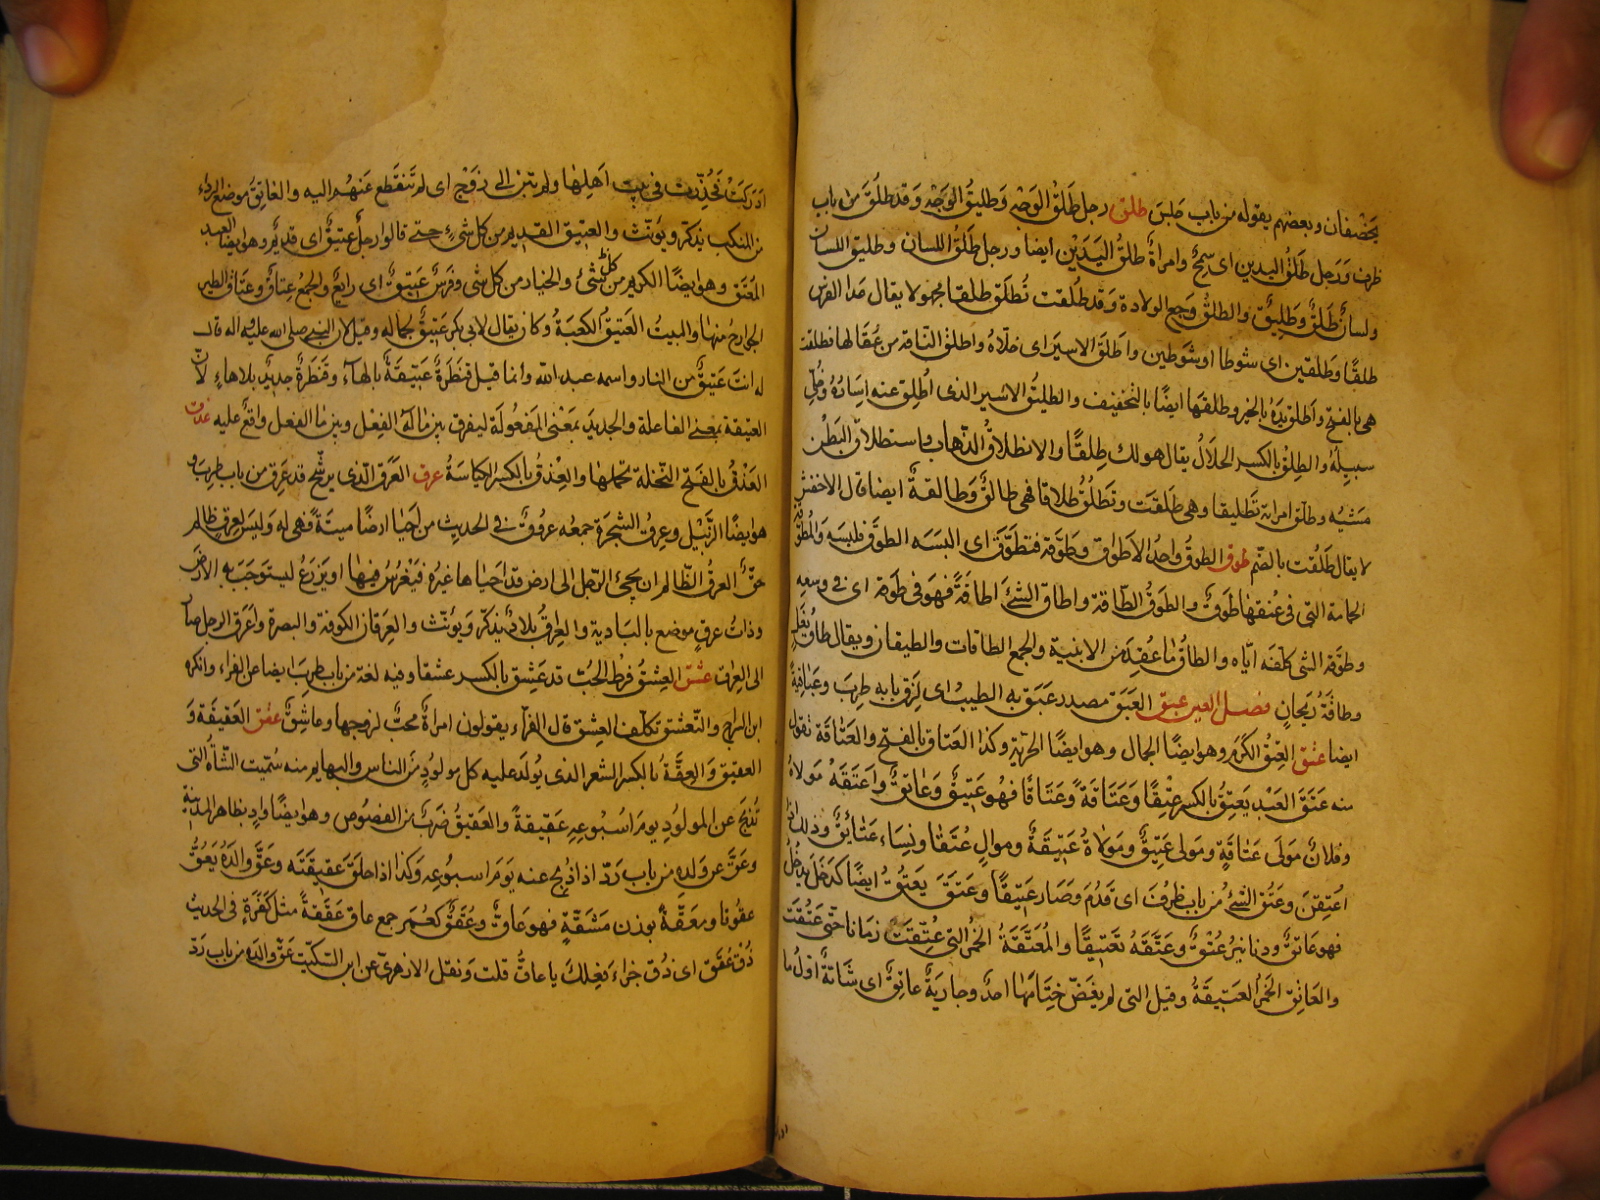 يخصفان وبعضهم يقوله من باب جلس طلق رجل طَلْقُ الوَجْهِ وَطليقُ الوَجْه وَقد طلُقَ من باب
ظرف وَرَجل طَلْقُ اليدين اى سمحٌ وامراةٌ طلقُ اليَدَيْن ايضا ورجل طَلْقُ اللسان وطليق اللسان
ولسانٌ طَلْقٌ وطَلِيقٌ والطلقُ وَجع الولادة وَقد طُلقت تُطلَق طلقا مجهولا يقال عدا الفرس
طلقًا وَطلقين اى شوطا اوشوطين واَطلَقَ الاسيرَ اى خلّاهُ واطلقَ الناقة من عُقَالها فطلقت
هى بالفتح واَطلق يَدَهُ بالخير وطلقها ايضًا بالتخفيف والطليقُ الاسير الذى اُطلِق عنه اِسَارُهُ وَخُلِّى
سبيلهُ والطِلْقُ بالكسر الحلالُ يقال هو لك طِلقًا والانطلاقُ الذهاب واستطلاق البَطْن
مَشيُه وطلق امراته تَطليقا وهى طَلَقت وتَطلُقُ طلاقا فهى طالقٌ وَطالقةٌ ايضا قال الاخفش
لا يقال طَلُقت بالضم طوق الطوقُ واحدُ الاَطواق وطوّقه فتطوَّق اى البسَه الطوقَ فلبسَه والمُطوَّقة
الحمامة التى فى عُنقها طوقٌ والطَوقُ الطّاقة واطاقَ الشئَ اطاقةً فهوَ فى طَوقه اى فى وسعه
وطوّقه الشئ كلّفه ايّاه والطاقُ ما عُقِدَ من الابنية والجمع الطاقات والطيقان ويقال طاق نَعْلٍ
وطاقَةُ رَيحانٍ فصل العين عبق العَبَق مصدر عَبَق به الطيب اى لَزِق بابه طرِبَ وعَبَاقيةً
ايضا عتق العِتْقُ الكَرَم وهو ايضًا الجمال وهو ايضًا الحرّية وكذا العتاق بالفتح والعَتاقة تقول
منه عَتَقَ العَبْد يَعتِقُ بالكسر عِتْقًا وَعَتَاقَةً وعَتَاقًا فهو عَتيقٌ وَعاتِقٌ واَعتَقَهُ مَولاهُ
وفلانٌ مولَى عَتاقةٍ ومَولى عَتيقٌ ومَولاةٌ عَتيقةٌ وموالٍ عُتَقاء ونِسَاء عَتَائقٌ وذلك اذا
اُعتِقنَ وعَتُقَ الشئُ من باب ظرُفَ اى قَدُمَ وصَار عَتيقًا وعَتَقَ يَعتُقُ ايضًا كدَخَلَ يدخُلُ
فهو عَاتقٌ ودنانيرُ عُتْقٌ وعَتَّقَهُ تَعتيقًا والمُعَتَّقَةُ الخمرُ التى عُتّقت زمانا حتّى عَتُقَت
والعَاتِق الخمرُ العَتيقةُ وقيل التى لم يَفُضّ خِتَامَها احدٌ وجاريَةٌ عاتقٌ اى شَابّةٌ اوّلُ ما
اَدرَكَتْ فَخُدّرَت فى بيت اَهلِها ولم تَبِن الى زَوْج اى لم تَنقَطع عَنهُم اليه والعَاتِقُ موضع الرداء
من المنكب يُذكّر ويُؤنّث والعتيق القديم من كل شئ حتى قالوا رجلٌ عَتيقٌ اى قديم وهو ايضًا العبد
المُعتَق وهو ايضًا الكريم من كل شئ والخيار من كل شى وفرسٌ عَتيقٌ اى رايعٌ والجمع عِتاقٌ وعتاقُ الطير
الجوارحُ منها والبيتُ العَتيقُ الكعبَةُ وكان يقال لابى بكرٍ عَتيقٌ لجماله وقيل لان النبى صلى الله عليه وآله قال
له انتَ عَتيقٌ من النار واسمه عبد الله وانما قيل قنطَرةٌ عَتيقَةٌ بالهاء وقَنطَرةٌ جديدٌ بلا هاءٍ لانّ
العتيقة بمعنى الفاعلة والجديدَ بمَعْنَى المَفعُولة ليفرق بين ما لَهُ الفِعْل وبين ما الفعل واقعٌ عليه عذق
العَذْقُ بالفتح النّخلة بحملها والعِذقُ بالكسر الكبَاسةُ عرق العَرَق الّذى يرشَحُ وقد عَرِق من باب طرِبَ و
هو ايضًا الزَّبيل وعِرقُ الشجَرَة جمعُه عروُقٌ وفى الحديث من اَحيَا ارضًا ميتَةً فهى له وَليسَ لعِرقٍ ظالم
حقٌّ العرقُ الظّالم ان يجئَ الرّجل الى ارض قد اَحياها غيرُه فيَغرُسُ فيها او يَزرَعُ ليستَوجَبَ به الارضَ
وذاتُ عرقٍ موضع بالبَادية والعِراقُ بلادٌ يُذكّر وَيُؤنّث والعِراقان الكوفة والبصرة واَعرَقَ الرجل صار
الى العِراق عشق العِشْقُ فرط الحُبّ وقد عَشِق بالكسر عشقا وفيه لغة من باب طرِبَ ايضا عن الفراء وانكره
ابن السراج والتّعشق تكلّف العِشق قال الفرّاء يقولون امراةٌ مُحبٌّ لزوجها وعاشِقٌ عقق العَقيقَة وَ
العقيق وَالعِقّةُ بالكسر الشعر الذى يُولَد عليه كل مولودٍ من الناس والبهايم ومنه سُمّيت الشاةُ التى
تُذبَحُ عن المولود يومَ اُسبُوعِهِ عَقيقةً والعَقيقُ ضَربٌ من الفصُوص وهو ايضًا وادٍ بظاهر المدينة
وعَقَّ عن وَلده من باب رَدَّ اذا ذُبِح عنه يَومَ اسبوعه وَكذا اذا حلَقَ عقيقَتَه وعَقَّ والدَهُ يَعُقُّ
عقُوقا ومَعَقّةً بوزن مَشَقّةٍ فهو عَاقٌّ وعُقَقٌ كعُمَر جمع عاق عَقَقَةٌ مثل كَفَرَةٍ وفى الحديث
ذُقْ عُقَق اى ذُق جزاءَ فِعلِكَ يا عاقُّ قلت وَنقل الازهرىّ عن ابن السّكيت عَقَّ والدَه من باب رَدَّ